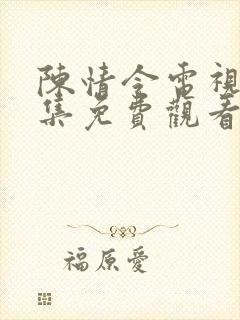 陳情令電視
集免費觀看
福原愛